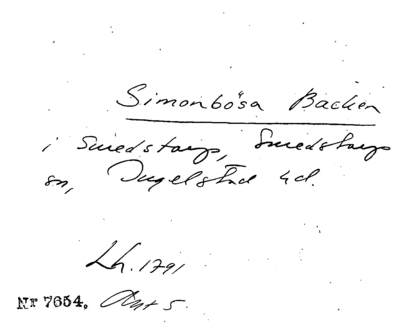 Simonbösa Backen
i Smedstorp, Smedstorps
sn, Ingelstad hd.
Lh. 1791
Nr 7654. Akt 5